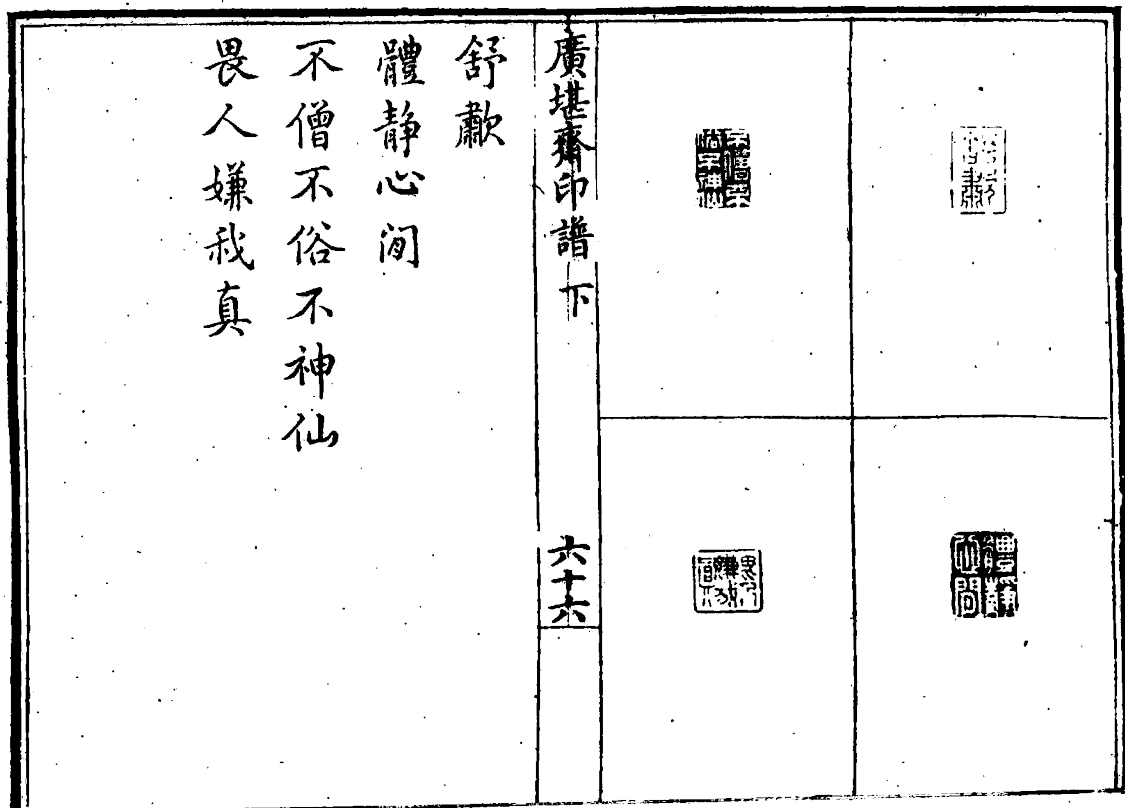 廣堪齋印譜 下
六十六
舒歗
體静心閒
不僧不俗不神仙
畏人嫌我真